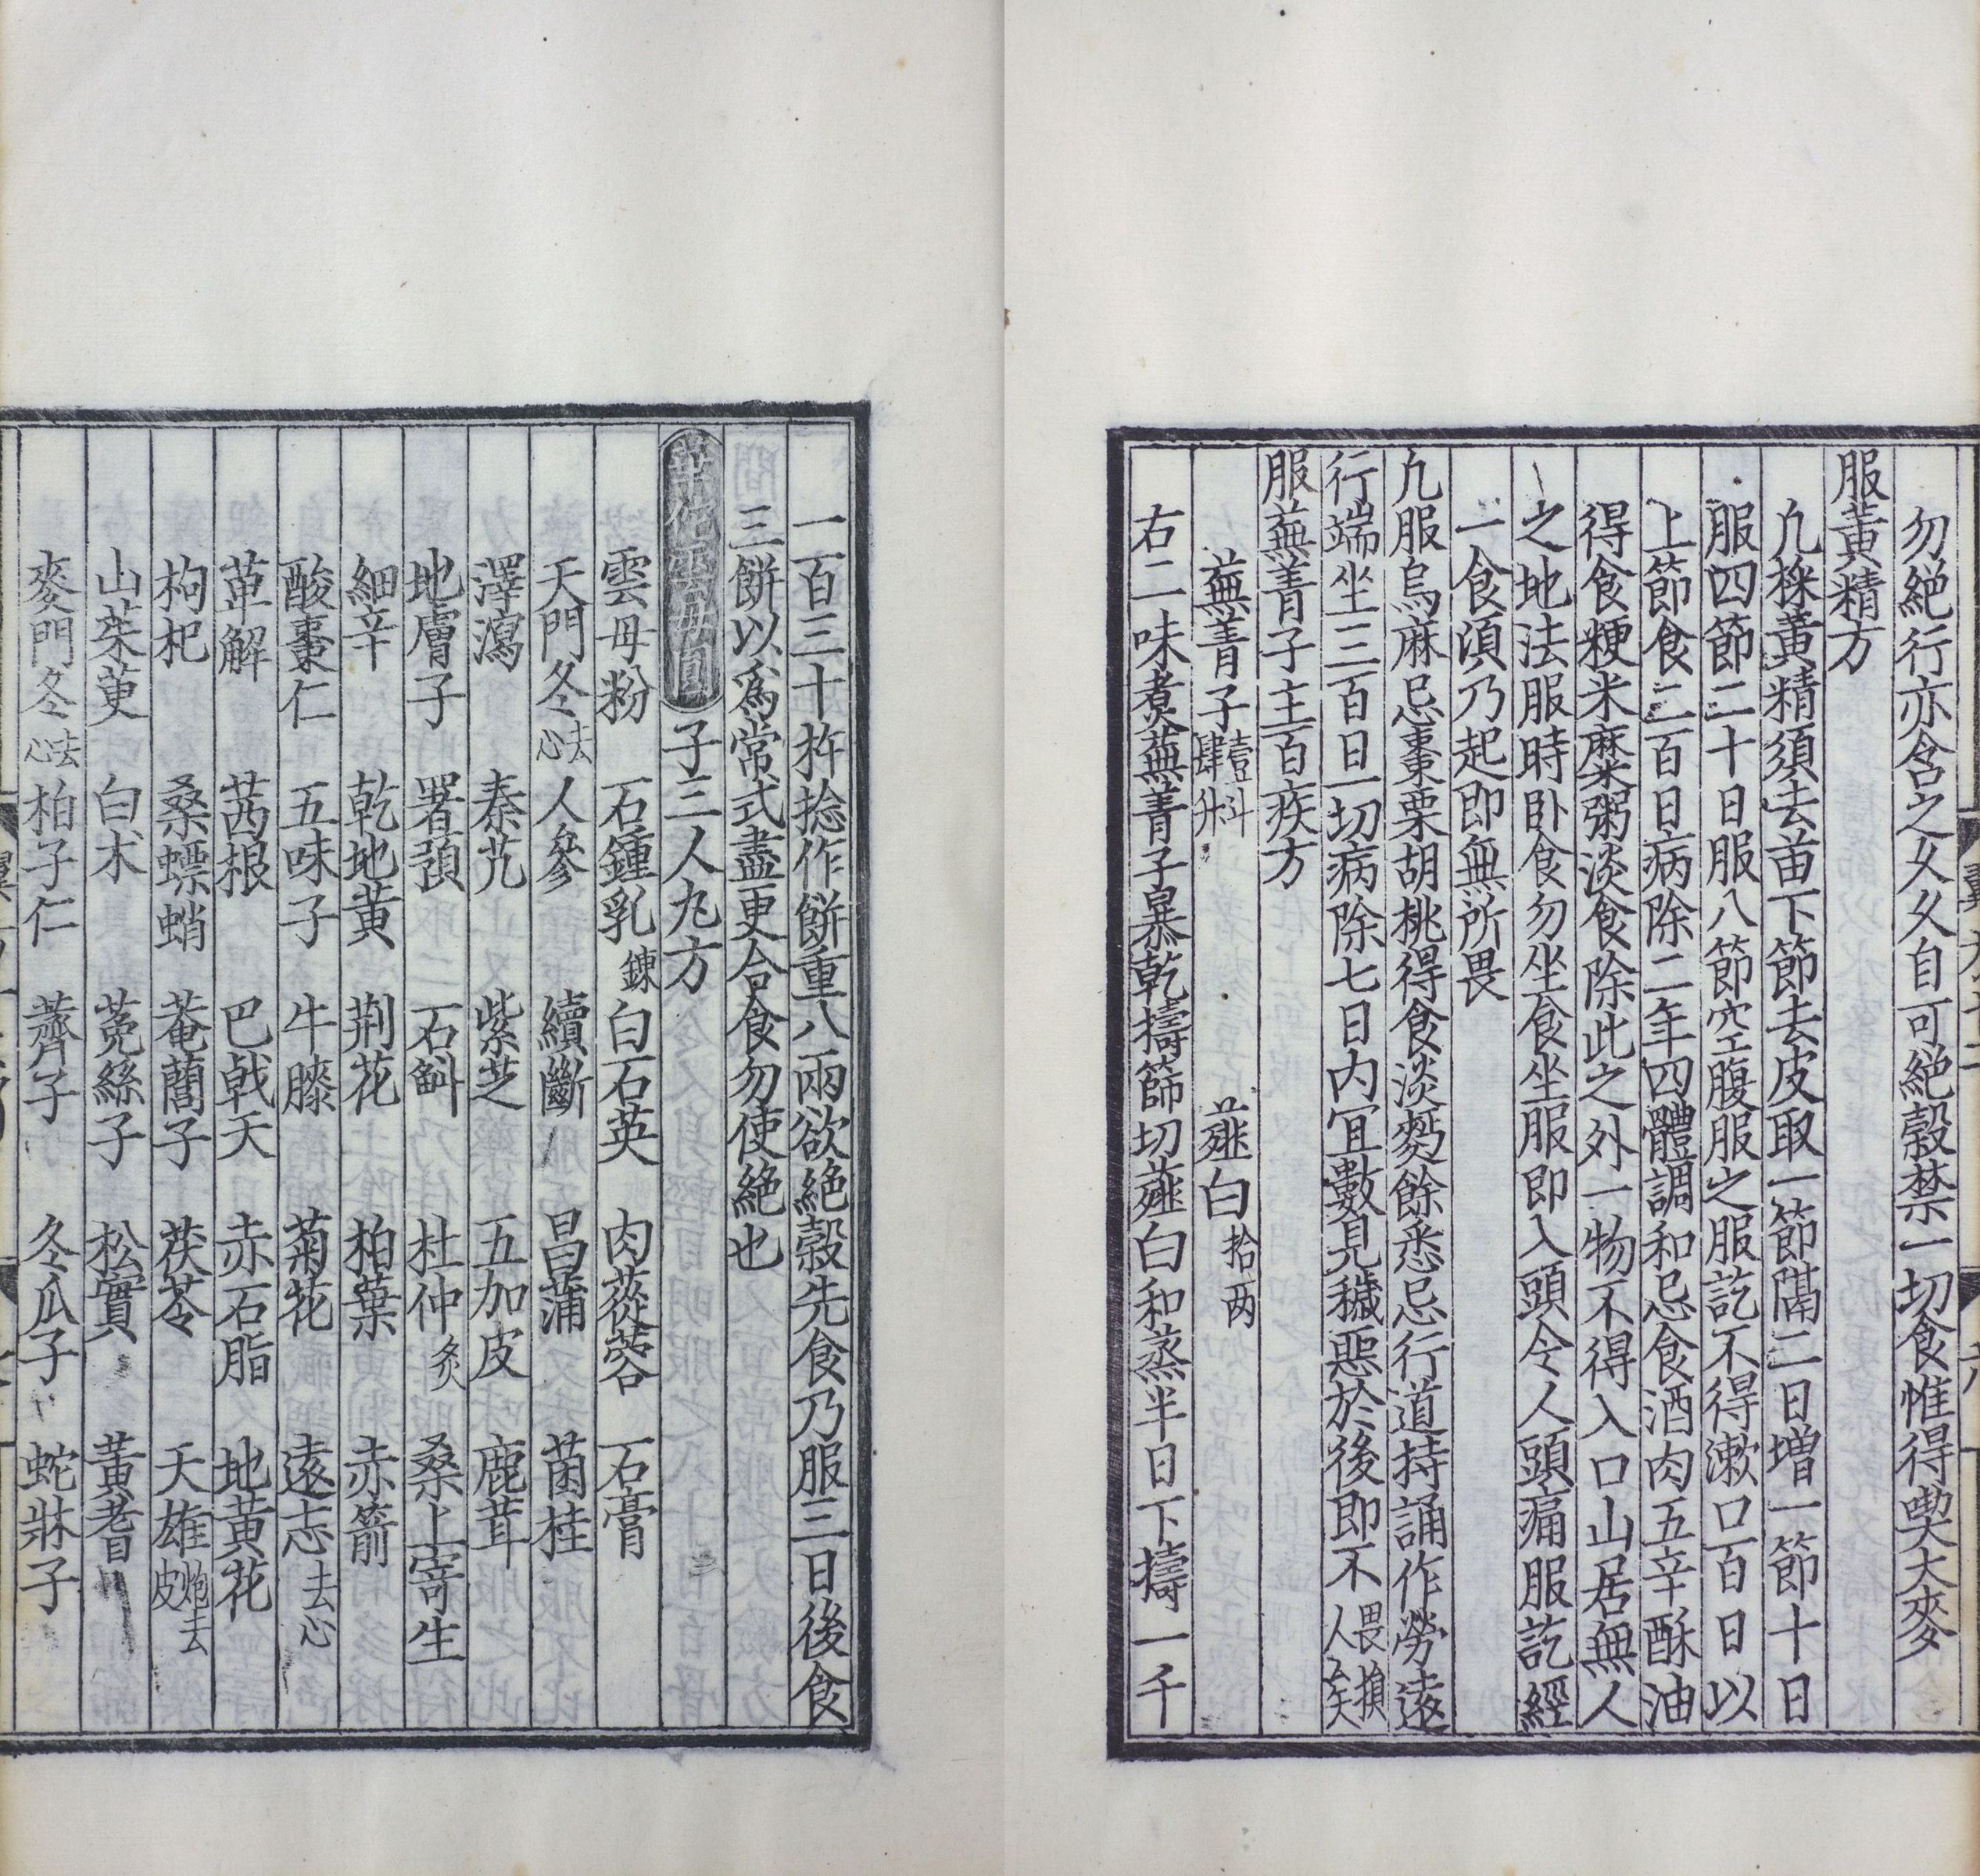 勿絶行亦含之久久自可絶穀禁一切食惟得喫大麥
服黃精方
凢採黃精須去苗下節去皮取一節隔二日増一節十日
服四節二十日服八節空腹服之服訖不得漱口百日以
上節食二百日病除二年四體調和忌食酒肉五辛酥油
得食粳米糜粥淡食除此之外一物不得入口山居無人
之地法服時卧食勿坐食坐服即入頭令人頭痛服訖經
一食湏乃起即無所畏
凢服烏麻忌棗栗胡桃得食淡麪餘悉忌行道持誦作勞遠
行端坐三百日一切病除七日内冝數見穢惡於後即不畏損人矣
服蕪菁子主百疾方
蕪菁子壹㪷肆升 薤白拾两
右二味煑蕪菁子暴乾擣篩切薤白和蒸半日下擣一千
一百三十杵捻作餅重八兩欲絶穀先食乃服三日後食
三餅以爲常式盡更合食勿使絶也
華佗雲母圓子三人丸方
雲母粉 石鍾乳鍊 白石英 肉蓯蓉 石膏
天門冬去心 人參 續斷 昌蒲 菌桂
澤瀉 秦艽 紫芝 五加皮 鹿茸
地膚子 署預 石斛 杜仲炙 桑上寄生
細辛 乾地黃 荆花 柏葉 赤箭
酸棗仁 五味子 牛膝 菊花 遠志去心
萆解 茜根 巴戟天 赤石脂 地黃花
枸杞 桑螵蛸 菴䕡子 茯苓 天雄炮去皮
山茱萸 白术 菟絲子 松實 黃耆
麥門冬去心 柏子仁 薺子 冬瓜子 蛇牀子